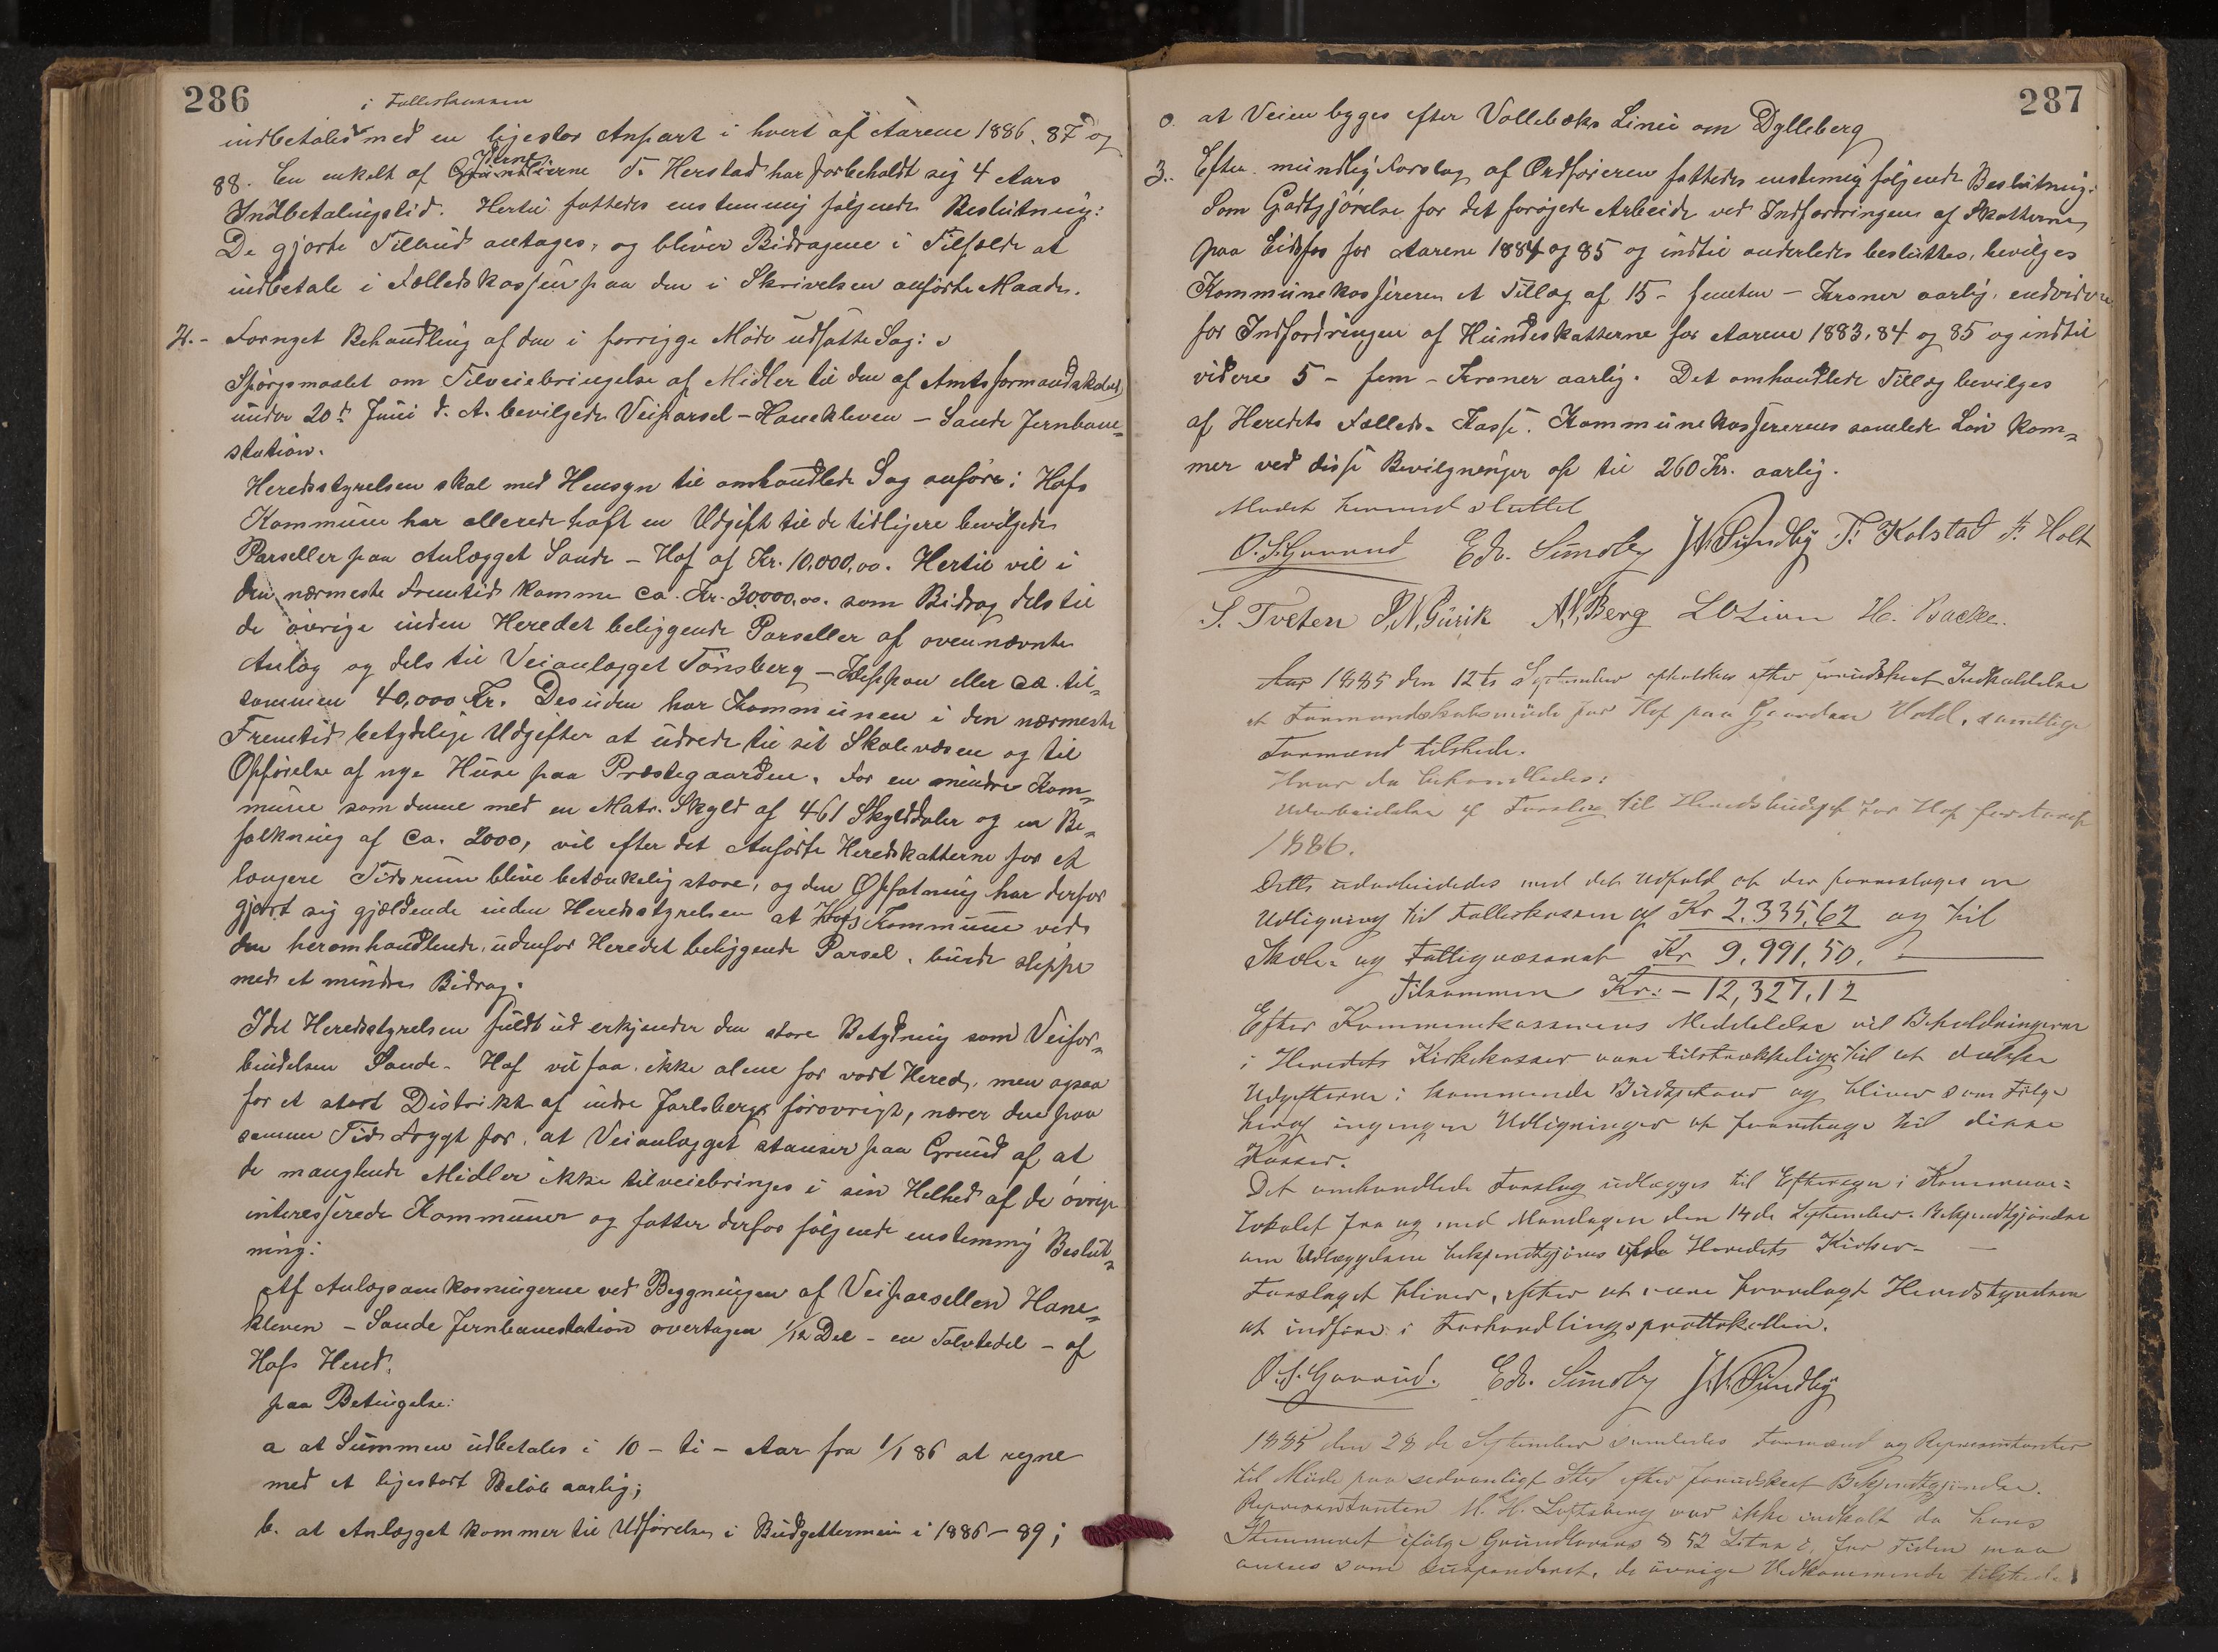 286
i Fælleskassen
indbetales med en ligestor Anpart i hvert af Aarene 1886, 87 og
88. En enkelt af Yderne T. Herstad har forbeholdt sig 4 Aars
Indbetalingstid. Hertil fattedes enstemmig følgende Beslutning:
De gjorte Tilbud antages, og bliver Bidragene i Tilfælde at
indbetale i Fælledskassen paa den i Skrivelsen anførte Maade.
2.- Fornyet Behandling af den i forrigge Møde udsatte Sag:
Spørgsmaalet om Tilveiebringelse af Midler til den af Amtsformandskabet
under 20de Juni d. A. bevilgede Veiparsel - Hanekleven - Sande Jernbane-
station.
Heredsstyrelsen skal med Hensyn til omhandlede Sag anføre: Hofs
Kommune har allerede haft en Udgift til de tidligere bevilgede
Parseller paa Anlægget Sande - Hof af Kr. 10,000,00. Hertil vil i
den nærmeste Fremtid komme ca. Kr. 30000,00. som Bidrag dels til
de øvrige inden Heredet beliggende Parseller af ovennævnte
Anlæg og dels til Veianlægget Tønsberg - Kleppan eller ca. til-
sammen 40,000 Kr. Desuden har Kommunen i den nærmeste
Fremtid betydelige Udgifter at udrede til sit Skolevæsen og til
Opførelse af nye Huse paa Præstegaarden. For en mindre Kom-
mune som denne med en Matr. Skyld af 461 Skylddaler og en Be-
folkning af ca. 2000, vil efter det Anførte Heredskatterne for et
længere Tidsrum blive betænkelig store, og den Opfatning har derfor
gjort sig gjældende inden Heredsstyrelsen at Hofs Kommune ved
den heromhandlende, udenfor Heredet beliggende Parsel, burde slippe
med et mindre Bidrag.
Idet Heredsstyrelsen fuldt ud erkjender den store Betydning som Veifor-
bindelsen Sande - Hof vil faa, ikke alene for vort Hered, men ogsaa
for et stort Distrikt af indre Jarlsberg forøvrigt, nærer den paa
samme Tid Frygt for, at Veianlægget stanser paa Grund af at
de manglende Midler ikke tilveiebringes i sin Helhed af de øvrige
interesserede Kommuner og fatter derfor følgende enstemmig Beslut-
ning:
Af Anlægsomkosningerne ved Byggningen af Veiparsellen Hane-
kleven - Sande Jernbanestation overtages 1/12 Del - en Tolvtedel - af
Hofs Hered,
paa Betingelse:
a at Summen udbetales i 10 - ti - Aar fra 1/1 86 at regne
med et ligestort Beløb aarlig;
b. at Anlægget kommer til Udførelse i Budgettermin i 1886 - 89;
287
c. at Veien bygges efter Vollebæks Linie om Dylleberg
3. Efter mundlig Forslag af Ordføreren fattedes enstemig følgende Beslutning:
Som Godtgjørelse for det forøgede Arbeide ved Indfordringen af Skatterne
paa Eidsfos for Aarene 1884 og 85 og indtil anderledes besluttes, bevilges
Kommunekassereren et Tillæg af 15 - femten - Kroner aarlig, endvidere
for Indfordringen af Hundeskatterne for Aarene 1883, 84 og 85 og indtil
videre 5 - fem - Kroner aarlig. Det omhandlede Tillæg bevilges
af Heredets Fælleds-Kasse. Kommunekassererens samlede Løn kom-
mer ved disse Bevilgninger op til 260 Kr. aarlig.
Mødet hermed sluttet
O. S. Gaarud Edv. Sundby J. N. Sundby T. Kolstad F. Holt
S. Tveten P. N. Gurik A. N. Berg L O Lian H. Backe.
Aar 1885 den 12te September afholdtes efter forudskeet Indkaldelse
et Formandskabsmøde for Hof paa Gaarden Vold, samtlige
Formænd tilstede.
Hvor da behandledes:
Udarbeidelse af Forslag til Heredsbudget for Hof for Aaret
1886.
Dette udarbeidedes med det Udfald at der foreslages en
Udligning til Fælleskassen af Kr 2.335,62 og til
Skole- og Fattigvæsenet Kr 9.991,50.
Tilsammen Kr: - 12,327,12
Efter Kommunekassererens Meddelelse vil Beholdningerne
i Heredets Kirkekasser være tilstrækkelige til at dække
Udgifterne i kommende Budgetaar og bliver som Følge
heraf ingen Udligninger at foretage til disse
Kasser.
Det omhandlede Forslag udlægges til Eftersyn i Kommune-
lokalet fra og med Mandagen den 14de September. Bekjendtgjørelse
om Udlæggelsen bekjendtgjøres ved Heredets Kirker -
Forslaget bliver, efter at være forelagt Heredstyrelsen
at indføre i Forhandlingsprottokollen.
O. S. Gaarud. Edv. Sundby J. N. Sundby
1885 den 28de September samledes Formænd og Repræsentanter
til Møde paa sedvanligt Sted efter forudskeet Bekjendtgjørelse.
Repræsentanten H. H. var ikke indkaldt da hans
Stemmeret ifølge Grundlovens § 52 Litra for Tiden maa
ansees som suspenderet, de øvrige Vedkommende tilstede